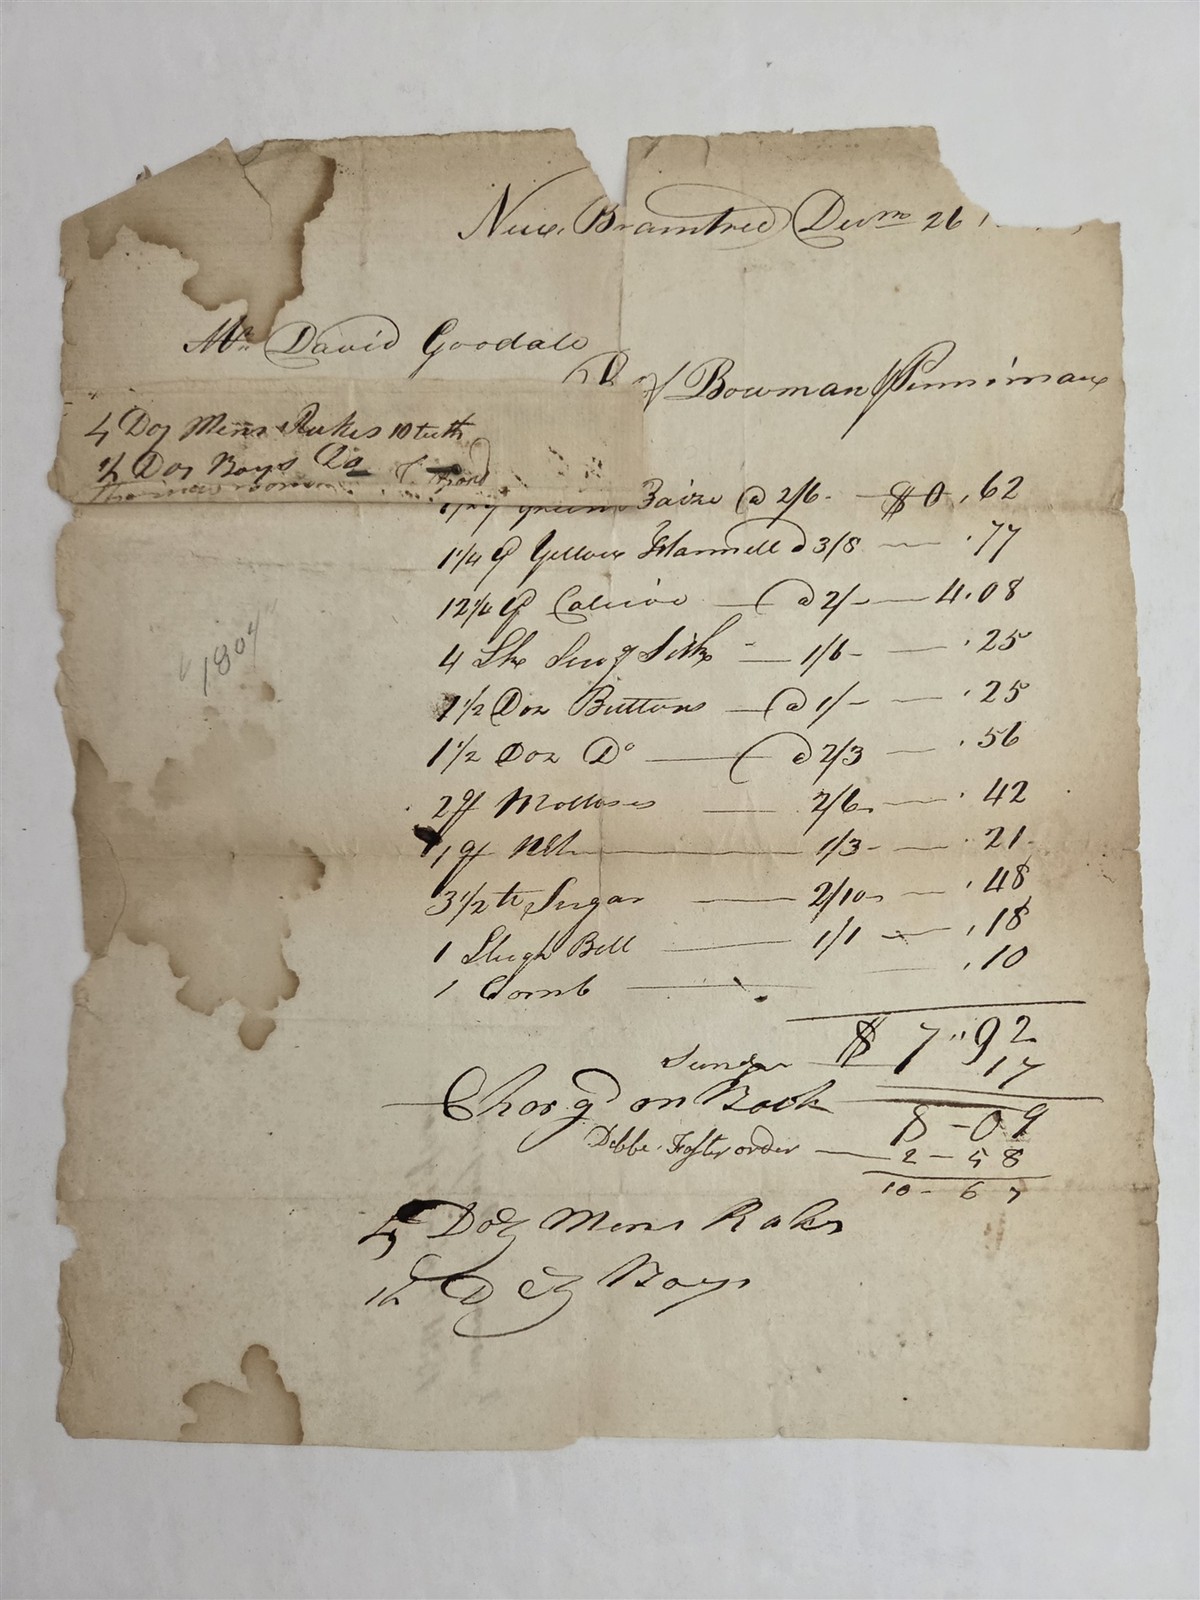 New Braintree Decm 26
Mr David Goodale
Bot of Bowman Penniman
4 Doz Mens Rakes 10 teeth
1/2 Doz Boys Do
Green Baize @ 2/6 - $0.62
1 1/4 y Yellow Flannell @ 3/8 - .77
12 1/4 y Calicoe - @ 2/- - 4.08
4 Sks Sewg Silk - 1/6 - .25
1 1/2 Doz Buttons - @ 1/- - .25
1 1/2 Doz Do - @ 2/3 - .56
2 qt Mollases - 2/6 - .42
1 qt NER - 1/3 - .21
3 1/2 lb Sugar - 2/10 - .48
1 Sleigh Bell - 1/1 - .18
1 Comb - .10
$ 7"92
17
Charg'd on Book 8-09
Debbe Foster order - 2-58
10-67
4 Doz Mens Rakes
1/2 Doz Boys
1804